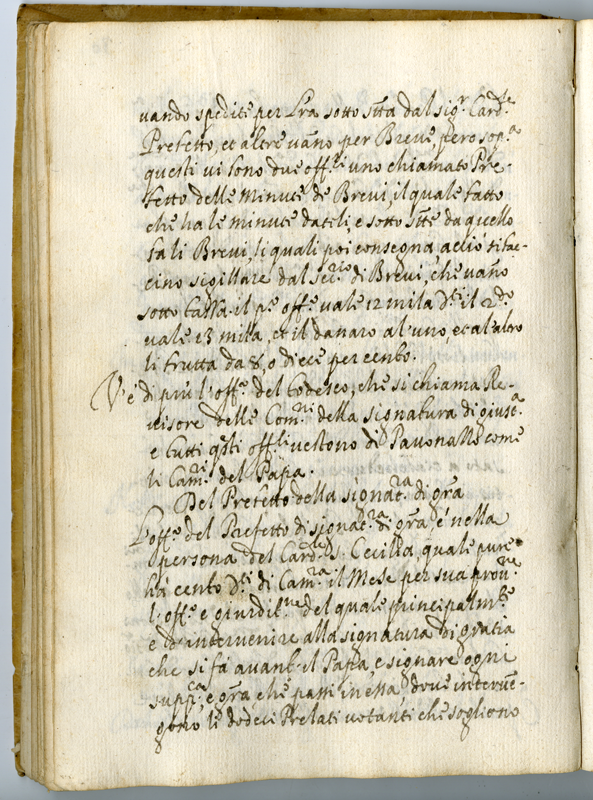 vando spedite per Lra sotto stta dal sigr. Cardle
Prefetto, et altre vano per Breve, pero sopa
questi vi sono due offli uno chiamato Pre-
fetto delle Minute de Brevi, il quale fatto
che ha le minute dateli, e sotto stte da quello
fa li Brevi, li quali poi consegna, acciò si fac-
cino sigillare dal Secrio di Brevi, che vano
sotto tassa. il po offo vale 12 mila Dti il 2do
vale 13 mila, et il danaro al uno, et al altro
li frutta da 8, o diece per cento.
V'è di più l'offo del Todesco, che si chiama Re-
visore delle Comni della signatura di giusta
e tutti qsti offli vestono di Pavonazzo come
li Camri del Papa.
Del Prefetto della signatra di gra
L'offo del Prefetto di signatra di gra, é nella
persona del Cardle S. Cecilia, quale pure
há cento Dti di Camra il Mese per sua provne
l'offo e giurditne del quale principalmte
e d'intervenire alla signatura di gratia
che si fá avanti il Papa, e signare ogni
suppca, e gra, che passi in essa dove interven-
gono li dodeci Prelati votanti che sogliono